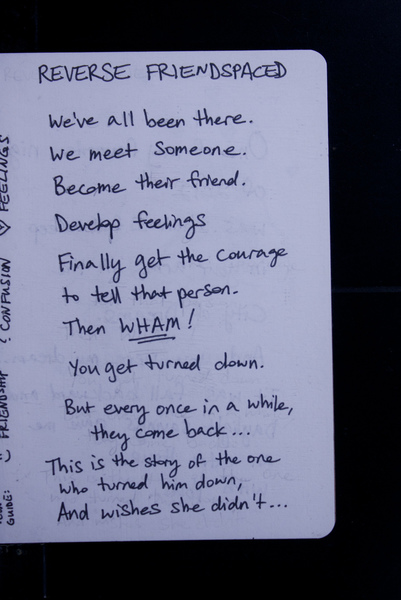 REVERSE FRIENDSPACED
We've all been there.
We meet someone.
Become their friend.
Develop feelings
Finally get the courage
to tell that person.
Then WHAM!
You get turned down.
But every once in a while,
they come back...
This is the story of the one
who turned him down,
And wishes she didn't...
GUIDE:
FRIENDSHIP
! CONFUSION
♡ FEELINGS